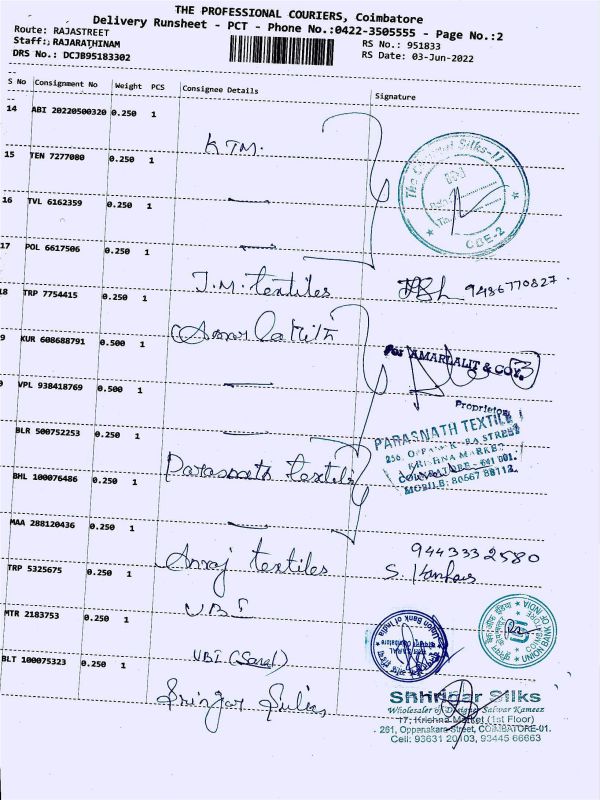 THE PROFESSIONAL COURIERS, Coimbatore
Delivery Runsheet - PCT - Phone No.:0422-3505555 - Page No.:2
Route: RAJASTREET
Staff: RAJARATHINAM
DRS No.: DCJB95183302
RS No.: 951833
RS Date: 03-Jun-2022
S No Consignment No Weight PCS Consignee Details Signature
14 ABI 20220500320 0.250 1
KTM.
15 TEN 7277080 0.250 1
16 TVL 6162359 0.250 1
17 POL 6617506 0.250 1
CBE-2
J.M. textiles 9486770827
8 TRP 7754415 0.250 1
9 KUR 608688791 0.500 1
For AMARLALIT & COY.
VPL 938418769 0.500 1
Proprietor
BLR 500752253 0.250 1
PARASNATH TEXTILE
KRISHNA MARKET
COIMBATORE - 641 001.
Parasnath textile
BHL 100076486 0.250 1
MAA 288120436 0.250 1
9443332580
textiles
TRP 5325675 0.250 1
UBI
MTR 2183753 0.250 1
Union Bank of India
UNION BANK OF INDIA
UBI (Saral)
BLT 100075323 0.250 1
Shringar Silks
Wholesaler of Designer Salwar Kameez
17, Krishna Market (1st Floor)
261, Oppanakara Street, COIMBATORE-01.
Cell: 93631 20103, 93445 66663